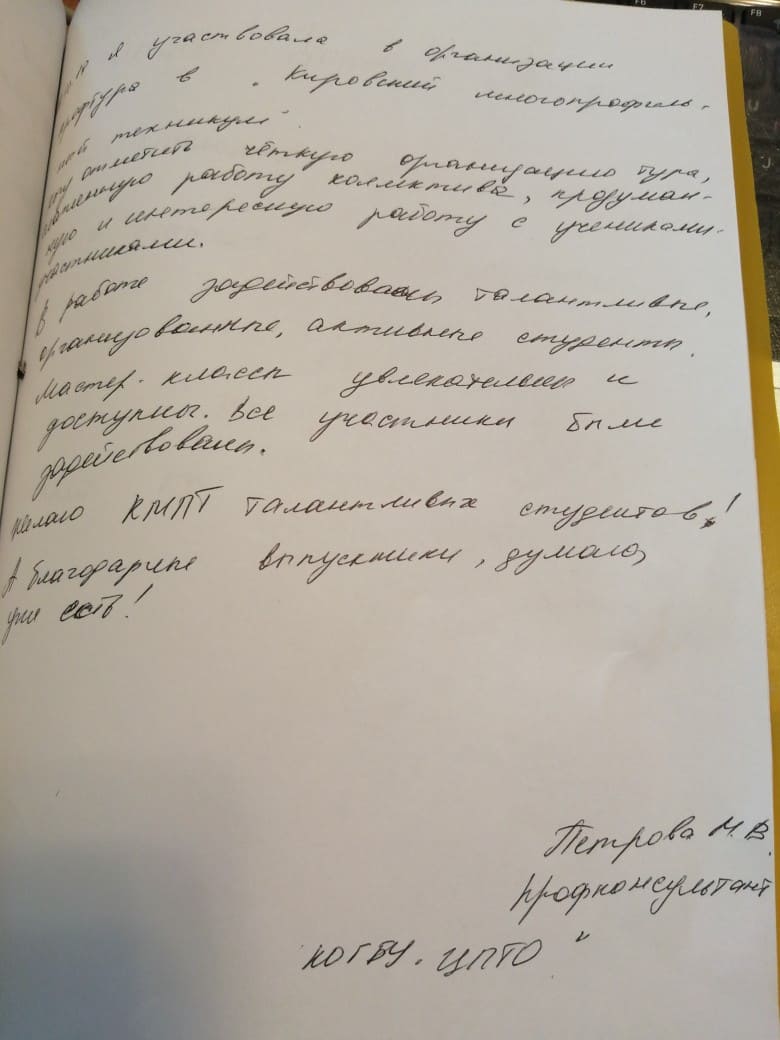 я участвовала в организации
профтура в "Кировский многопрофиль-
ный техникум".
отметить чёткую организацию тура,
работу коллектива, продуман-
и интересную работу с учениками-
участниками.
В работе задействованы талантливые,
организованные, активные студенты.
Мастер-классы увлекательны и
доступны. Все участники были
задействованы.
Желаю КМПТ талантливых студентов!
А благодарные выпускники, думаю,
уже есть!
Петрова М.В.
профконсультант
КОГБУ "ЦПТО"
F6 F7 F8